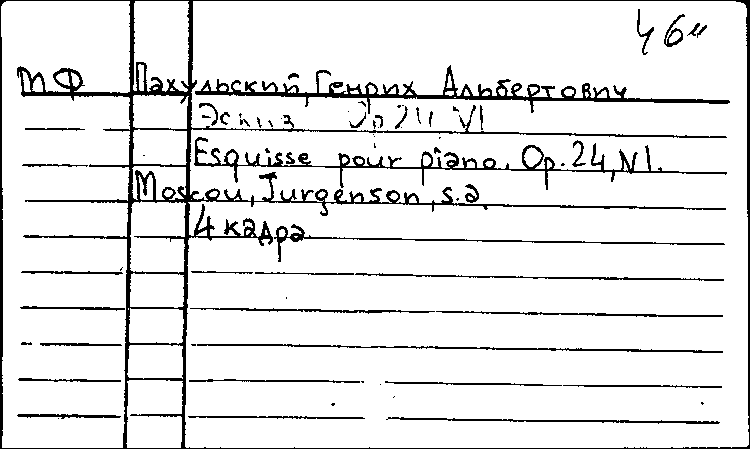 46"
МФ Пахульский, Генрих Альбертович
Эскиз Op 24 №1
Esquisse pour piano. Op. 24, N1.
Moscou, Jurgenson, s.a.
4 кадра